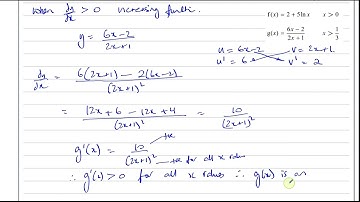 when dy/dx > 0 increasing functi.
f(x) = 2 + 5 ln x    x > 0
y = 6x-2 / 2x+1
g(x) = 6x - 2 / 2x + 1    x > 1/3
u = 6x-2    v = 2x+1
u' = 6    v' = 2
dy/dx = 6(2x+1) - 2(6x-2) / (2x+1)²
= 12x + 6 - 12x + 4 / (2x+1)² = 10 / (2x+1)²
g'(x) = 10 / (2x+1)²
+ve
+ve for all x values
∴ g'(x) > 0 for all x values ∴ g(x) is an